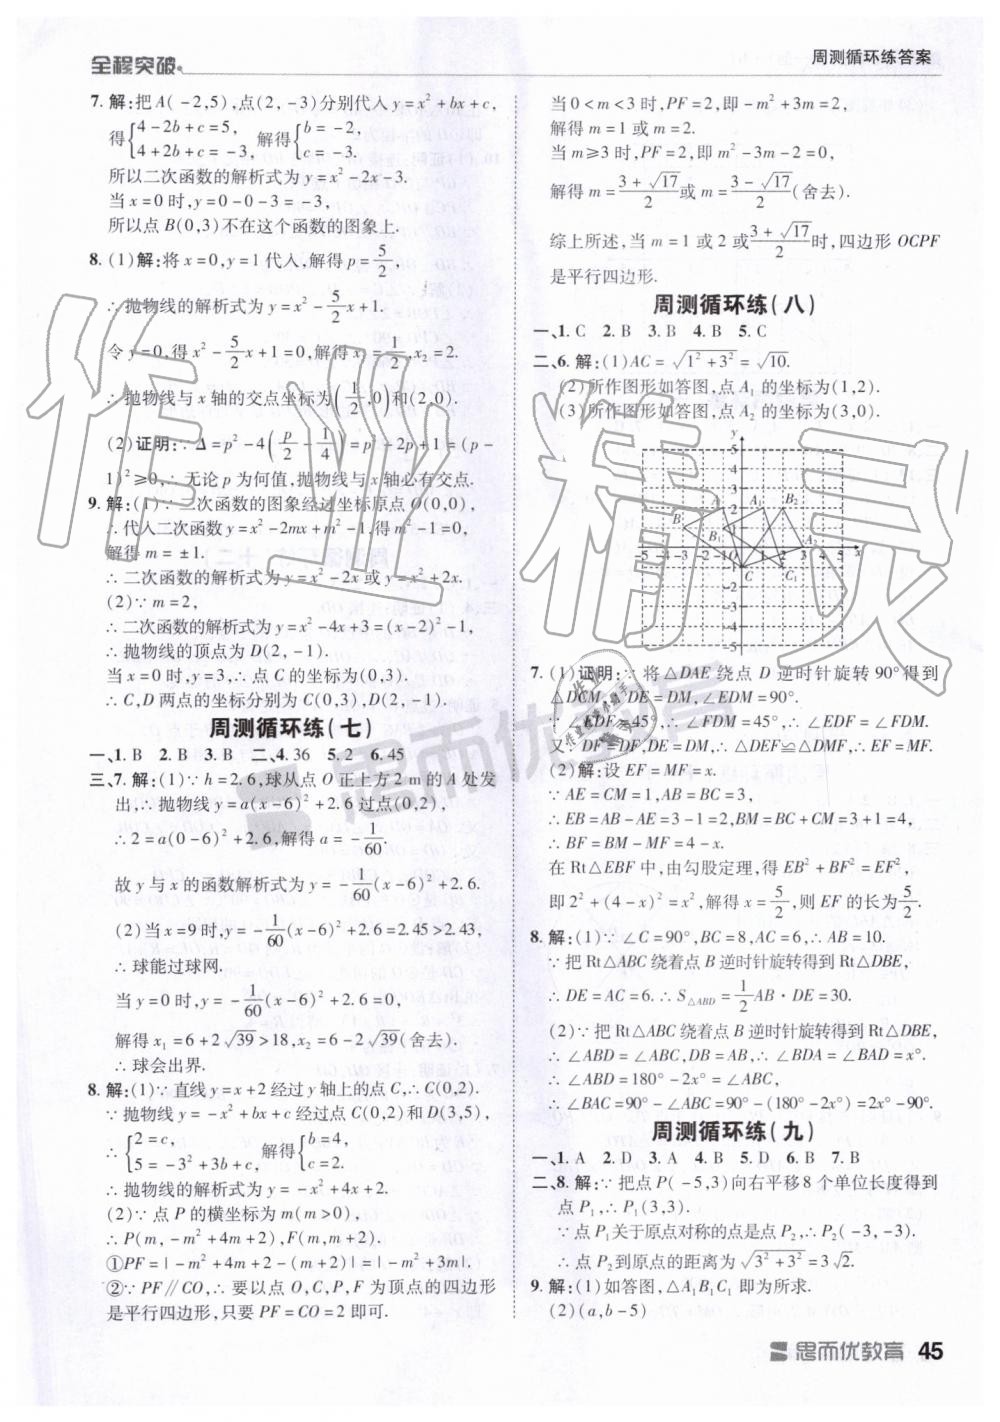 全程突破
周测循环练答案
7. 解:把A(-2,5),点(2,-3)分别代入y=x²+bx+c,
得{4-2b+c=5, 4+2b+c=-3, 解得{b=-2, c=-3.
所以二次函数的解析式为y=x²-2x-3.
当x=0时,y=0-0-3=-3,
所以点B(0,3)不在这个函数的图象上.
8. (1)解:将x=0,y=1代入,解得p=5/2.
∴抛物线的解析式为y=x²-5/2x+1.
令y=0,得x²-5/2x+1=0,解得x₁=1/2,x₂=2.
∴抛物线与x轴的交点坐标为(1/2,0)和(2,0).
(2)证明:∵Δ=p²-4(p/2-1/4)=p²-2p+1=(p-
1)²≥0,∴无论p为何值,抛物线与x轴必有交点.
9. 解:(1)∵二次函数的图象经过坐标原点O(0,0),
∴代入二次函数的解析式y=x²-2mx+m²-1,得m²-1=0,
解得m=±1.
∴二次函数的解析式为y=x²-2x或y=x²+2x.
(2)∵m=2,
∴二次函数的解析式为y=x²-4x+3=(x-2)²-1,
∴抛物线的顶点为D(2,-1).
当x=0时,y=3,∴点C的坐标为(0,3).
∴C,D两点的坐标分别为C(0,3),D(2,-1).
周测循环练(七)
一、1. B 2. B 3. B 二、4. 36 5. 2 6. 45
三、7. 解:(1)∵h=2.6,球从点O正上方2 m的A处发
出,∴抛物线y=a(x-6)²+2.6过点(0,2),
∴2=a(0-6)²+2.6,解得a=-1/60.
故y与x的函数解析式为y=-1/60(x-6)²+2.6.
(2)当x=9时,y=-1/60(x-6)²+2.6=2.45>2.43,
∴球能过球网.
当y=0时,y=-1/60(x-6)²+2.6=0,
解得x₁=6+2√39>18,x₂=6-2√39(舍去).
∴球会出界.
8. 解:(1)∵直线y=x+2经过y轴上的点C,∴C(0,2).
∵抛物线y=-x²+bx+c经过点C(0,2)和D(3,5),
∴{2=c, 5=-3²+3b+c, 解得{b=4, c=2.
∴抛物线的解析式为y=-x²+4x+2.
(2)∵点P的横坐标为m(m>0),
∴P(m,-m²+4m+2),F(m,m+2).
①PF=|-m²+4m+2-(m+2)|=|-m²+3m|.
②∵PF∥CO,∴要以点O,C,P,F为顶点的四边形
是平行四边形,只要PF=CO=2即可.
当0<m<3时,PF=2,即-m²+3m=2,
解得m=1或m=2.
当m≥3时,PF=2,即m²-3m-2=0,
解得m=3+√17/2或m=3-√17/2(舍去).
综上所述,当m=1或2或3+√17/2时,四边形OCPF
是平行四边形.
周测循环练(八)
一、1. C 2. B 3. B 4. B 5. C
二、6. 解:(1)AC=√1²+3²=√10.
(2)所作图形如答图,点A₁的坐标为(1,2).
(3)所作图形如答图,点A₂的坐标为(3,0).
7. (1)证明:∵将△DAE绕点D逆时针旋转90°得到
△DCM,∴DE=DM,∠EDM=90°.
∵∠EDF=45°,∴∠FDM=45°,∴∠EDF=∠FDM.
又∵DF=DF,DE=DM,∴△DEF≌△DMF.
(2)解:设EF=MF=x.
∵AE=CM=1,AB=BC=3,
∴EB=AB-AE=3-1=2,BM=BC+CM=3+1=4,
∴BF=BM-MF=4-x.
在Rt△EBF中,由勾股定理,得EB²+BF²=EF²,
即2²+(4-x)²=x²,解得x=5/2,则EF的长为5/2.
8. 解:(1)∵∠C=90°,BC=8,AC=6,∴AB=10.
∵把Rt△ABC绕着点B逆时针旋转得到Rt△DBE,
∴DE=AC=6.∴S△ABD=1/2AB·DE=30.
(2)∵把Rt△ABC绕着点B逆时针旋转得到Rt△DBE,
∴∠ABD=∠ABC,DB=AB,∴∠BDA=∠BAD=x°.
∴∠ABD=180°-2x°=∠ABC,
∴∠BAC=90°-∠ABC=90°-(180°-2x°)=2x°-90°.
周测循环练(九)
一、1. A 2. D 3. A 4. B 5. D 6. B 7. B
二、8. 解:∵把点P(-5,3)向右平移8个单位长度得到
点P₁,∴P₁(3,3).
∵点P₁关于原点对称的点是点P₂,∴P₂(-3,-3).
∴点P₂到原点的距离为√3²+3²=3√2.
9. 解:(1)如答图,△A₁B₁C₁即为所求.
(2)(a,b-5)
思而优教育 45
作业精灵
思而优教育